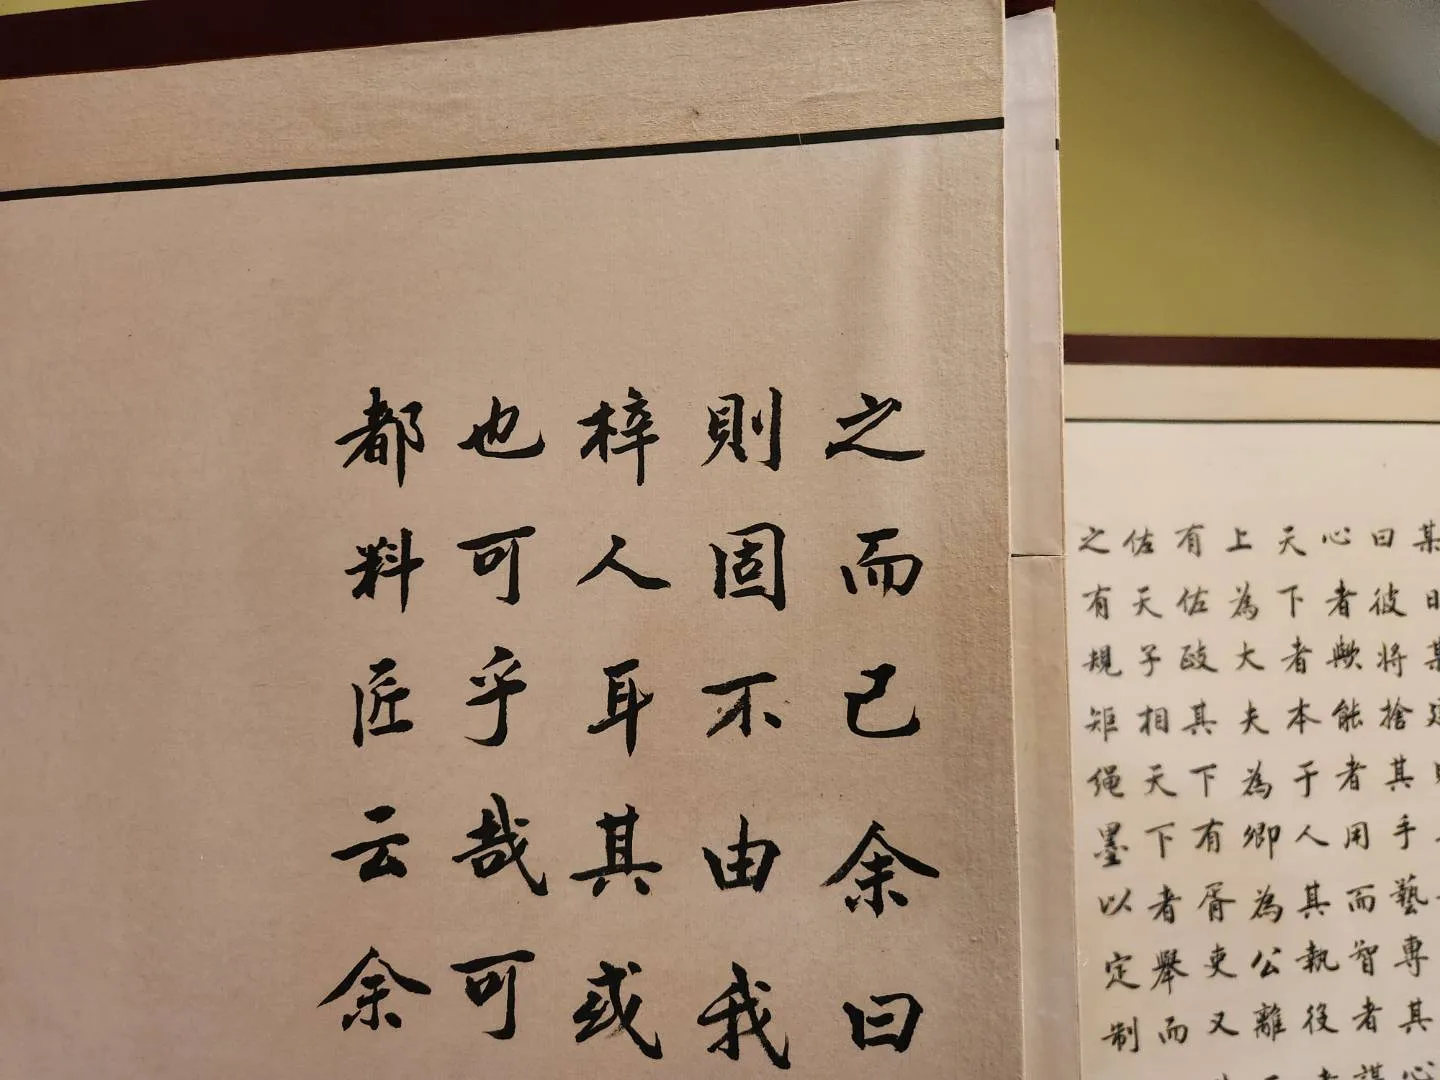 曰彼將捨其手藝專其心
心者歟能者用而智者謀
天下者本于人其執役者
上為大夫為卿為公離
有佐政其下有胥吏又
佐天子相天下者舉而
之有規矩绳墨以定制
之而已余曰
則固不由我
梓人耳其或
也可乎哉可
都料匠云余